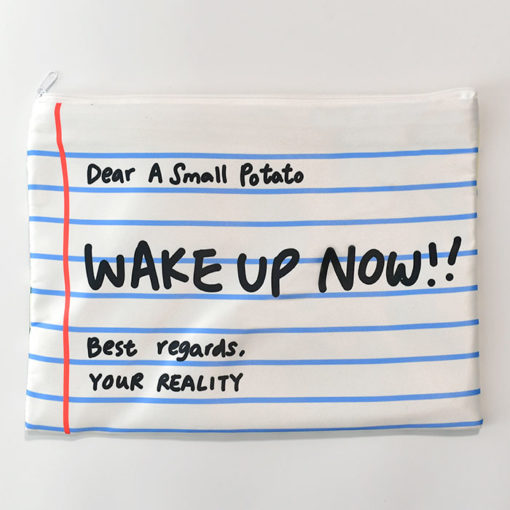 Dear A Small Potato
WAKE UP NOW!!
Best regards.
YOUR REALITY